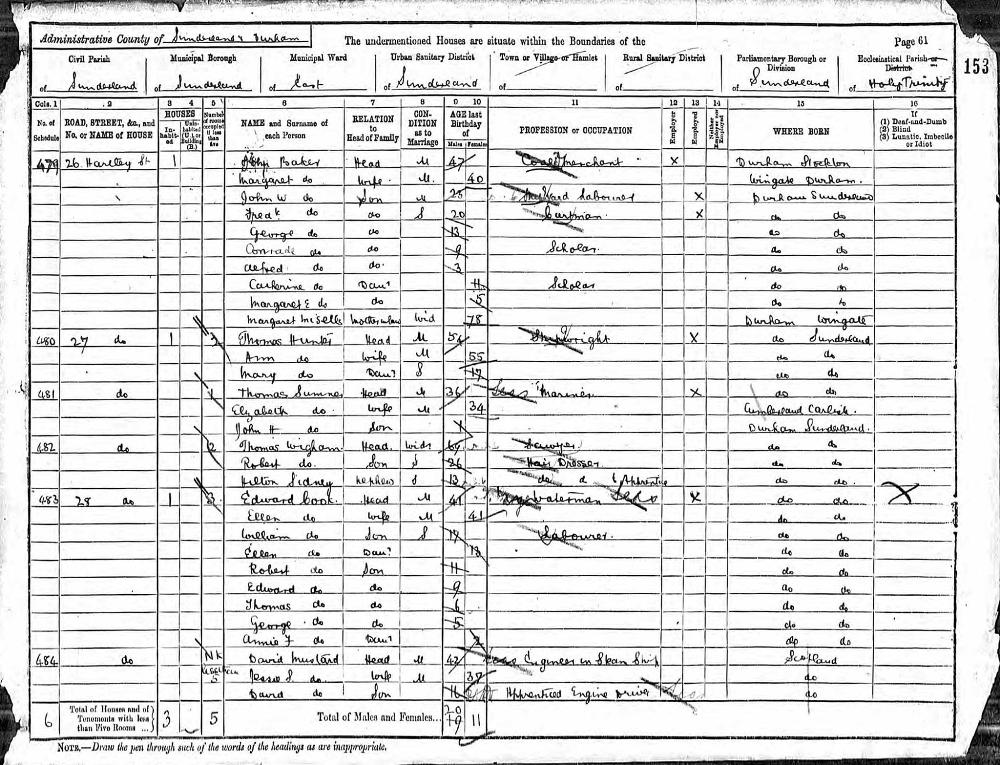 Administrative County of Sunderland Durham The undermentioned Houses are situate within the Boundaries of the Page 61
153
Civil Parish Municipal Borough Municipal Ward Urban Sanitary District Town or Village or Hamlet Rural Sanitary District Parliamentary Borough or Division Ecclesiastical Parish or District
of Sunderland of Sunderland of East of Sunderland of of of Sunderland of Holy Trinity
Cols. 1 2 3 4 5 6 7 8 9 10 11 12 13 14 15 16
No. of Schedule ROAD, STREET, &c., and No. or NAME of HOUSE HOUSES Inhabited Uninhabited (U.) or Building (B.) Number of rooms occupied if less than five NAME and Surname of each Person RELATION to Head of Family CONDITION as to Marriage AGE last Birthday of Males Females PROFESSION or OCCUPATION Employer Employed Neither Employer nor Employed WHERE BORN If (1) Deaf-and-Dumb (2) Blind (3) Lunatic, Imbecile or Idiot
479 26 Hartley St 1 John Baker Head M 47 Coal Merchant X Durham Stockton
Margaret do Wife M 40 Wingate Durham
John W do Son M 25 Labourer X Durham Sunderland
Fredk do do S 20 Cartman X do do
George do do 13 do do
Conrade do do 9 Scholar do do
Alfred do do 3 do do
Catherine do Daur 11 Scholar do do
Margaret E do do 5 do do
Margaret Mother in law Wid 78 Durham Wingate
480 27 do 1 3 Thomas Hunter Head M 54 Shipwright X do Sunderland
Ann do Wife M 55 do do
Mary do Daur S 17 do do
481 do 1 Thomas Sumner Head M 36 Mariner X do do
Elizabeth do Wife M 34 Cumberland Carlisle
John H do Son Durham Sunderland
482 do 2 Thomas Wigham Head Widr 64 Sawyer do do
Robert do Son S 26 Hair Dresser do do
Hilton Sidney Nephew S 13 do do Apprentice do do
483 28 do 1 3 Edward Cook Head M 41 Waterman X do do X
Ellen do Wife M 41 do do
William do Son S 17 Labourer do do
Ellen do Daur 13 do do
Robert do Son 11 do do
Edward do do 9 do do
Thomas do do 6 do do
George do do 5 do do
Annie F do Daur 2 do do
484 do David Mustard Head M 42 Engineer in Steam Ship Scotland
Jessie S do Wife M 38 do
David do Son 16 Apprenticed Engine Driver do
6 Total of Houses and of Tenements with less than Five Rooms ... 3 5 Total of Males and Females... 20 19 11
NOTE.—Draw the pen through such of the words of the headings as are inappropriate.